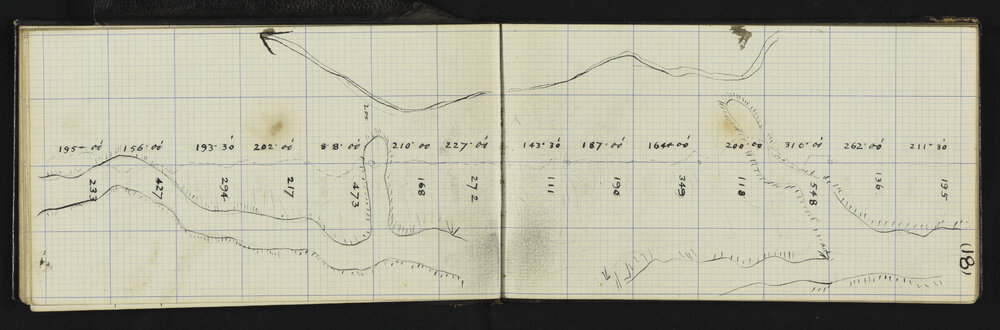 200
195+00' 156·00' 193·30' 202·00' 88·00' 210·00' 227·00' 143·30' 187·00' 164+00' 200·00' 310·00' 262·00' 211·30'
233 427 294 217 473 168 272 111 190 349 118 548 136 195
(18)